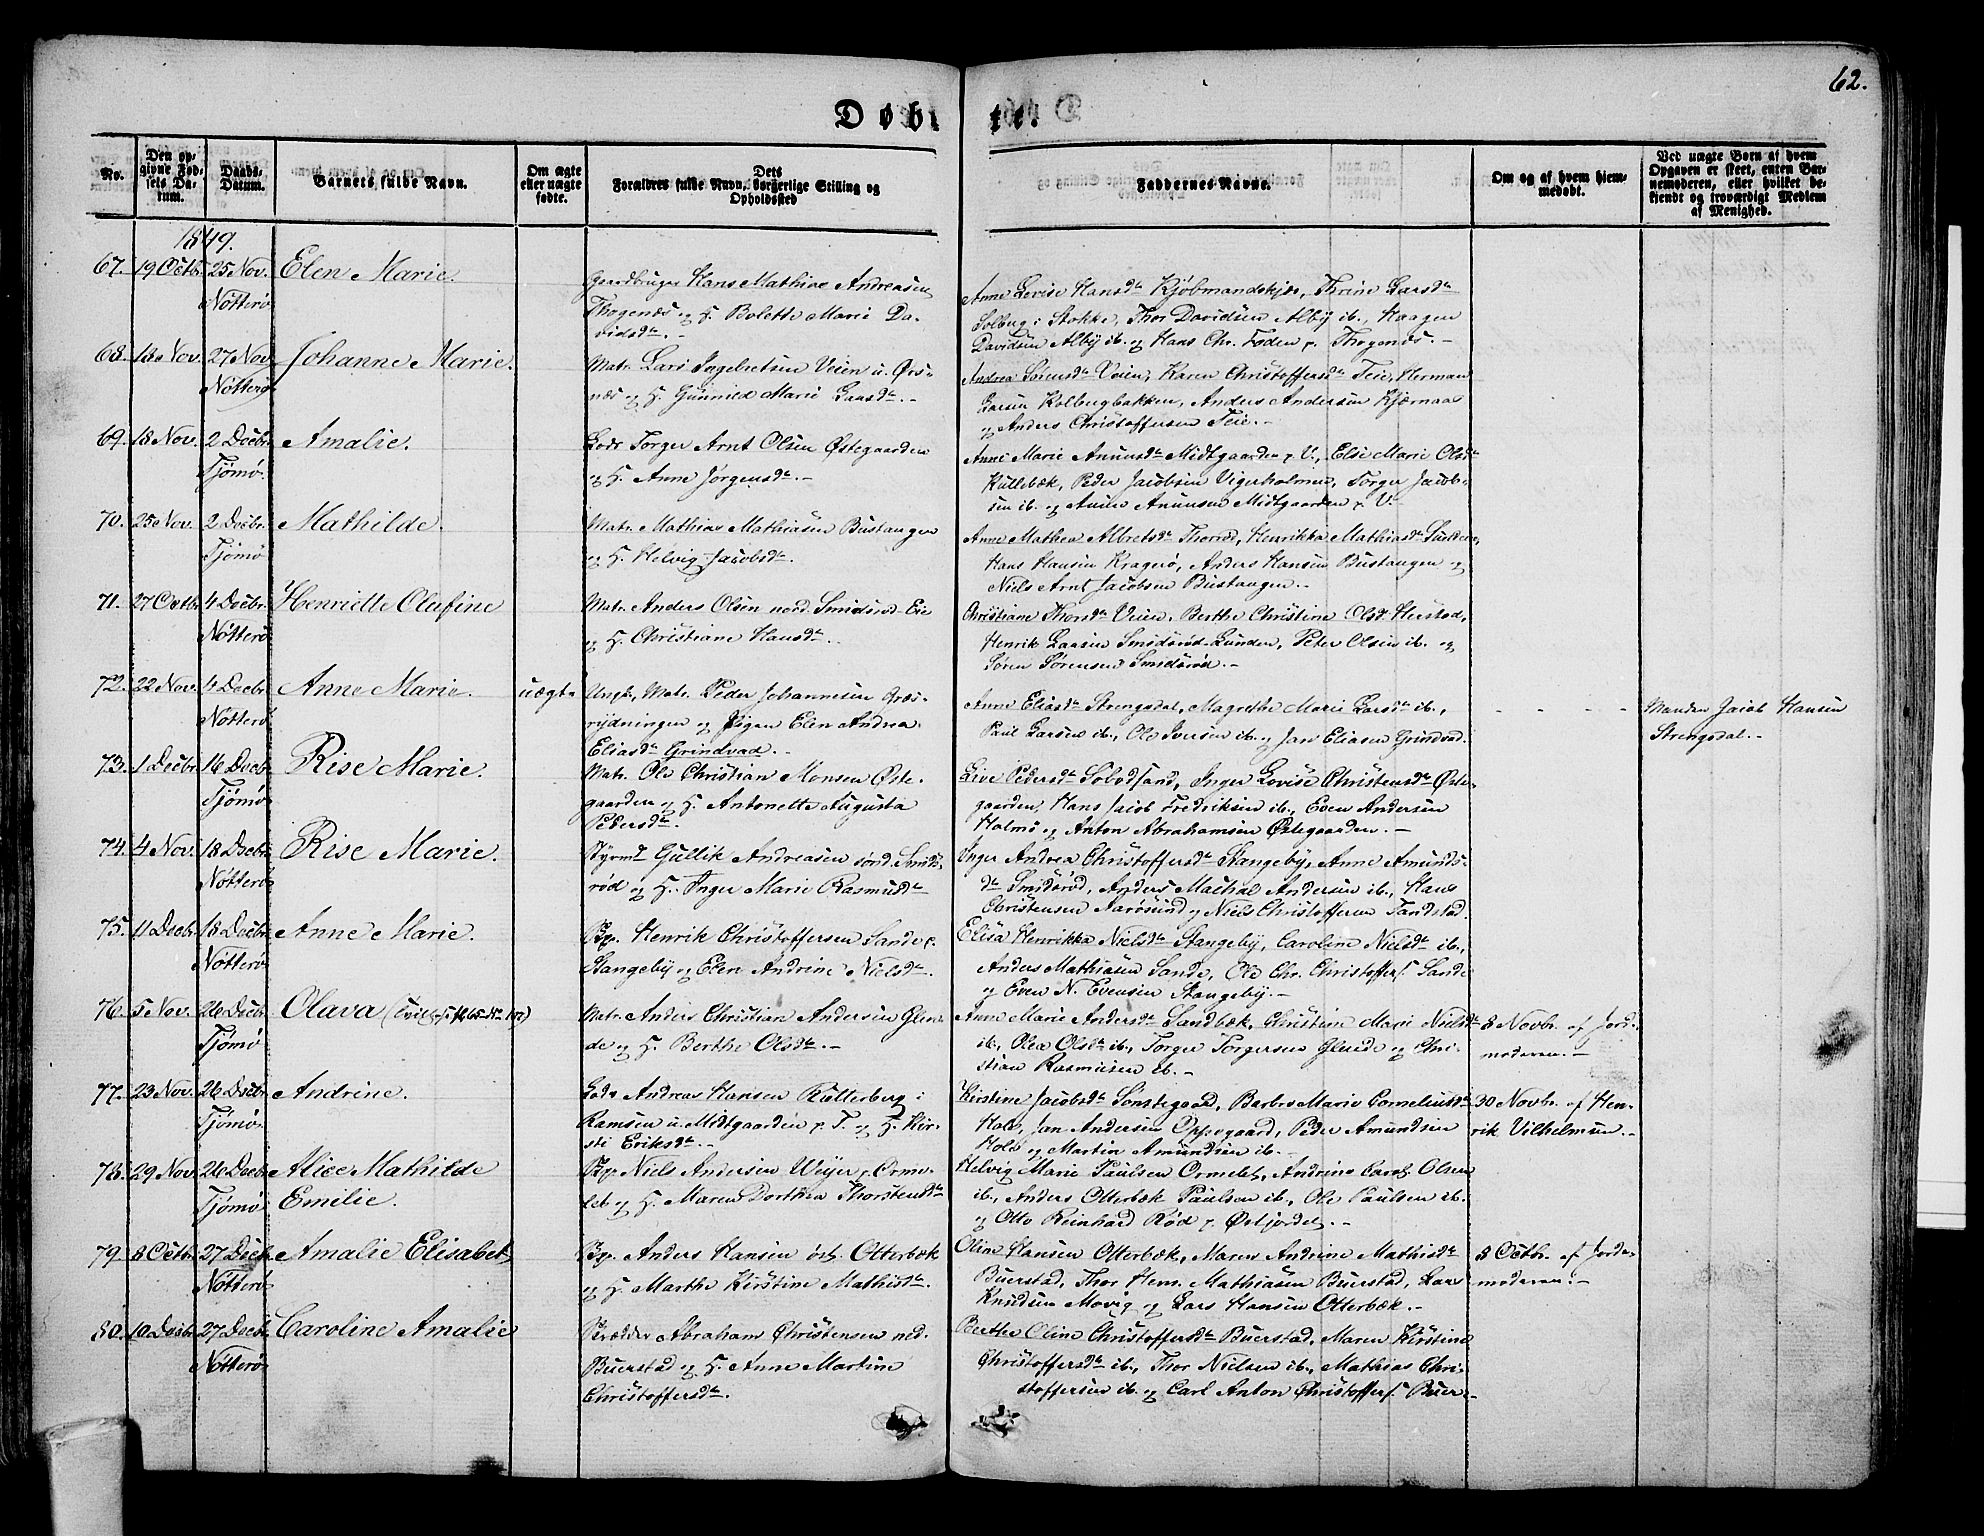 62.
Døbte.
No.
Den opgivne Fødsels Datum.
Daabs-Datum.
Barnets fulde Navn.
Om ægte eller uægte fødte.
Dets Forældres fulde Navn, borgerlige Stilling og Opholdssted
Faddernes Navne.
Om og af hvem hjemmedøbt.
Ved uægte Børn af hvem Opgaven er skeet, enten Barnemoderen, eller hvilket bekjendt og troværdigt Medlem af Menighed.
1849.
67. 19 Octbr. 25 Nov. Nötterö Elen Marie.
Gaardbruger Hans Mathias Andreasen
Thogenæs og H. Bolette Marie Da-
vidsdr.
Anne Lovise Hansdr Kjöbmandskjær, Thrine Larsdr
Solberg i Stokke, Thor Davidsen Alby ib., Haagen
Davidsen Alby ib. og Hans Chr. Foden p. Thogenæs.
68. 18 Nov. 27 Nov. Nötterö Johanne Marie.
Matr. Lars Ingebretsen Veien u. Örs-
næs og H. Gunnild Marie Larsdr.
Andrea Sörensdr Veien, Karen Christoffersdr Teie, Herman
Larsen Kolbergbakken, Anders Andersen Kjærnaas
og Anders Christoffersen Teie.
69. 18 Nov. 2 Decbr. Tjömö. Amalie.
Lods Torger Arnt Olsen Östegaarden
og H. Anne Jörgensdr.
Anne Marie Anunsdr Midtgaarden p. V., Else Marie Olsdr
Küllebæk, Peder Jacobsen Vigerholmen, Torger Jacob-
sen ib. og Anders Anunsen Midtgaarden p. V.
70. 25 Nov. 2 Decbr. Tjömö Mathilde.
Matr. Mathias Mathiasen Bustangen
og H. Helvig Jacobsdr.
Anne Mathea Albretsdr Thoröd, Henrikka Mathiasdr Sundene,
Hans Hansen Krageröe, Anders Hansen Bustangen og
Niels Arnt Jacobsen Bustangen.
71. 27 Octbr. 4 Decbr. Nötterö Henriette Olufine
Matr. Anders Olsen nord. Smidsröd Eie
og H. Christiane Hansdr.
Christiane Thorsdr Veien, Berthe Christine Olsd. Herstad,
Henrik Larsen Smidsröd-Lunden, Peter Olsen ib. og
Sören Sörensen Smidsröd.
72. 22 Nov. 4 Decbr. Nötterö Anne Marie. uægte
Ungk., Matr. Peder Johannesen Græs-
rydningen og Pigen Elen Andrea
Eliasdr Grindvad.
Anne Eliasdr Strengsdal, Magrethe Marie Larsdr ib.,
Paul Larsen ib., Ole Iversen ib. og Jan Eliasen Grindvad.
Manden Jacob Hansen
Strengsdal.
73. 1 Decbr. 16 Decbr. Tjömö Rise Marie.
Matr. Ole Christian Monsen Öste-
gaarden og H. Antonette Augusta
Pedersdr.
Live Pedersdr Sobodsand, Inger Lovise Christensdr Öste-
gaarden, Hans Jacob Fredriksen ib., Even Andersen
Holmö og Anton Abrahamsen Östegaarden.
74. 4 Nov. 18 Decbr. Nötterö Rise Marie.
Styrmd Gullik Andreasen sönd. Smids-
röd og H. Inger Marie Rasmusdr
Inger Andrea Christoffersdr Stangeby, Anne Amunds-
dr Smidsröd, Anders Mathias Andersen ib., Hans
Christensen Aarösund og Niels Christoffersen Tandstad.
75. 11 Decbr. 18 Decbr. Nötterö Anne Marie.
Bp. Henrik Christoffersen Sande p.
Stangeby og Elen Andrine Nielsdr.
Elisa Henrikka Nielsdr Stangeby, Caroline Nielsdr ib.,
Anders Mathiasen Sande, Ole Chr. Christoffers. Sande
og Even N. Evensen Stangeby.
76. 5 Nov. 26 Decbr. Tjömö Olava
Matr. Anders Christian Andersen Glen-
de og H. Berthe Olsdr.
Anne Marie Andersdr Sandbæk, Christine Marie Nielsdr
ib., Olea Olsdr ib., Torger Torgersen Glende og Chri-
stian Rasmusen ib.
8 Novbr. af Jord-
moderen.
77. 23 Nov. 26 Decbr. Tjömö Andrine.
Lods Andreas Hansen Rülterberg i
Ramsen u. Midtgaarden p. T. og H. Kir-
sti Eriksdr.
Kirstine Jacobsdr Sönstegaard, Barbro Marie Corneliusdr
Hole, Jan Andersen Oppegaard, Peder Amundsen
Hole og Martin Amundsen ib.
30 Novbr. af Hen-
rik Vilhelmsen.
78. 29 Nov. 26 Decbr. Tjömö Alice Mathilde
Emilie.
Bp. Niels Andersen Weyer p. Orme-
let og H. Maren Dorthea Thorstensdr
Helvig Marie Paulsen Ormelet, Andrine Carol. Olsen
ib., Anders Otterbæk Paulsen ib., Ole Paulsen ib.
og Otto Reinhard Röd p. Östjordet.
79. 8 Octbr. 27 Decbr. Nötterö Amalie Elisabet,
Bp. Anders Hansen öst. Otterbæk
og H. Marthe Kirstine Mathisdr.
Oline Hansen Otterbæk, Maren Andrine Mathisdr
Buerstad, Thor Hem. Mathiasen Buerstad, Lars
Knudsen Movig og Lars Hansen Otterbæk.
8 Octbr. af Jorde-
moderen.
80. 10 Decbr. 27 Decbr. Nötterö Caroline Amalie
Skrædder Abraham Christensen ned.
Buerstad og H. Anne Martine
Christoffersdr.
Berthe Oline Christoffersdr Buerstad, Maren Kirstine
Christoffersdr ib., Thor Nielsen ib., Mathias Chri-
stoffersen ib. og Carl Anton Christoffers. Buer-